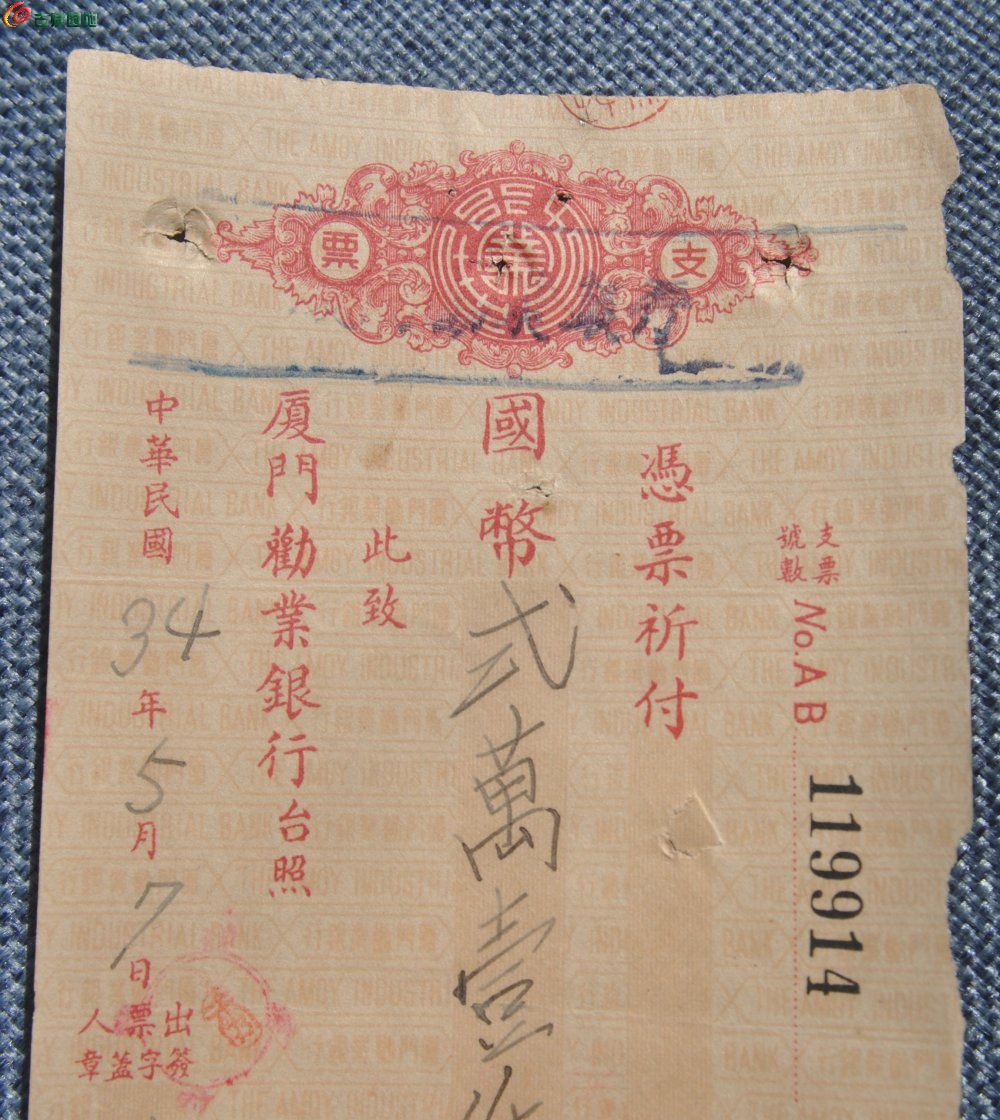 支票
支票號數 No. AB 119914
憑票祈付
國幣 弍萬壹仟
此致
廈門勸業銀行台照
中華民國34年5月7日
出票人
簽字蓋章
THE AMOY INDUSTRIAL BANK
廈門勸業銀行